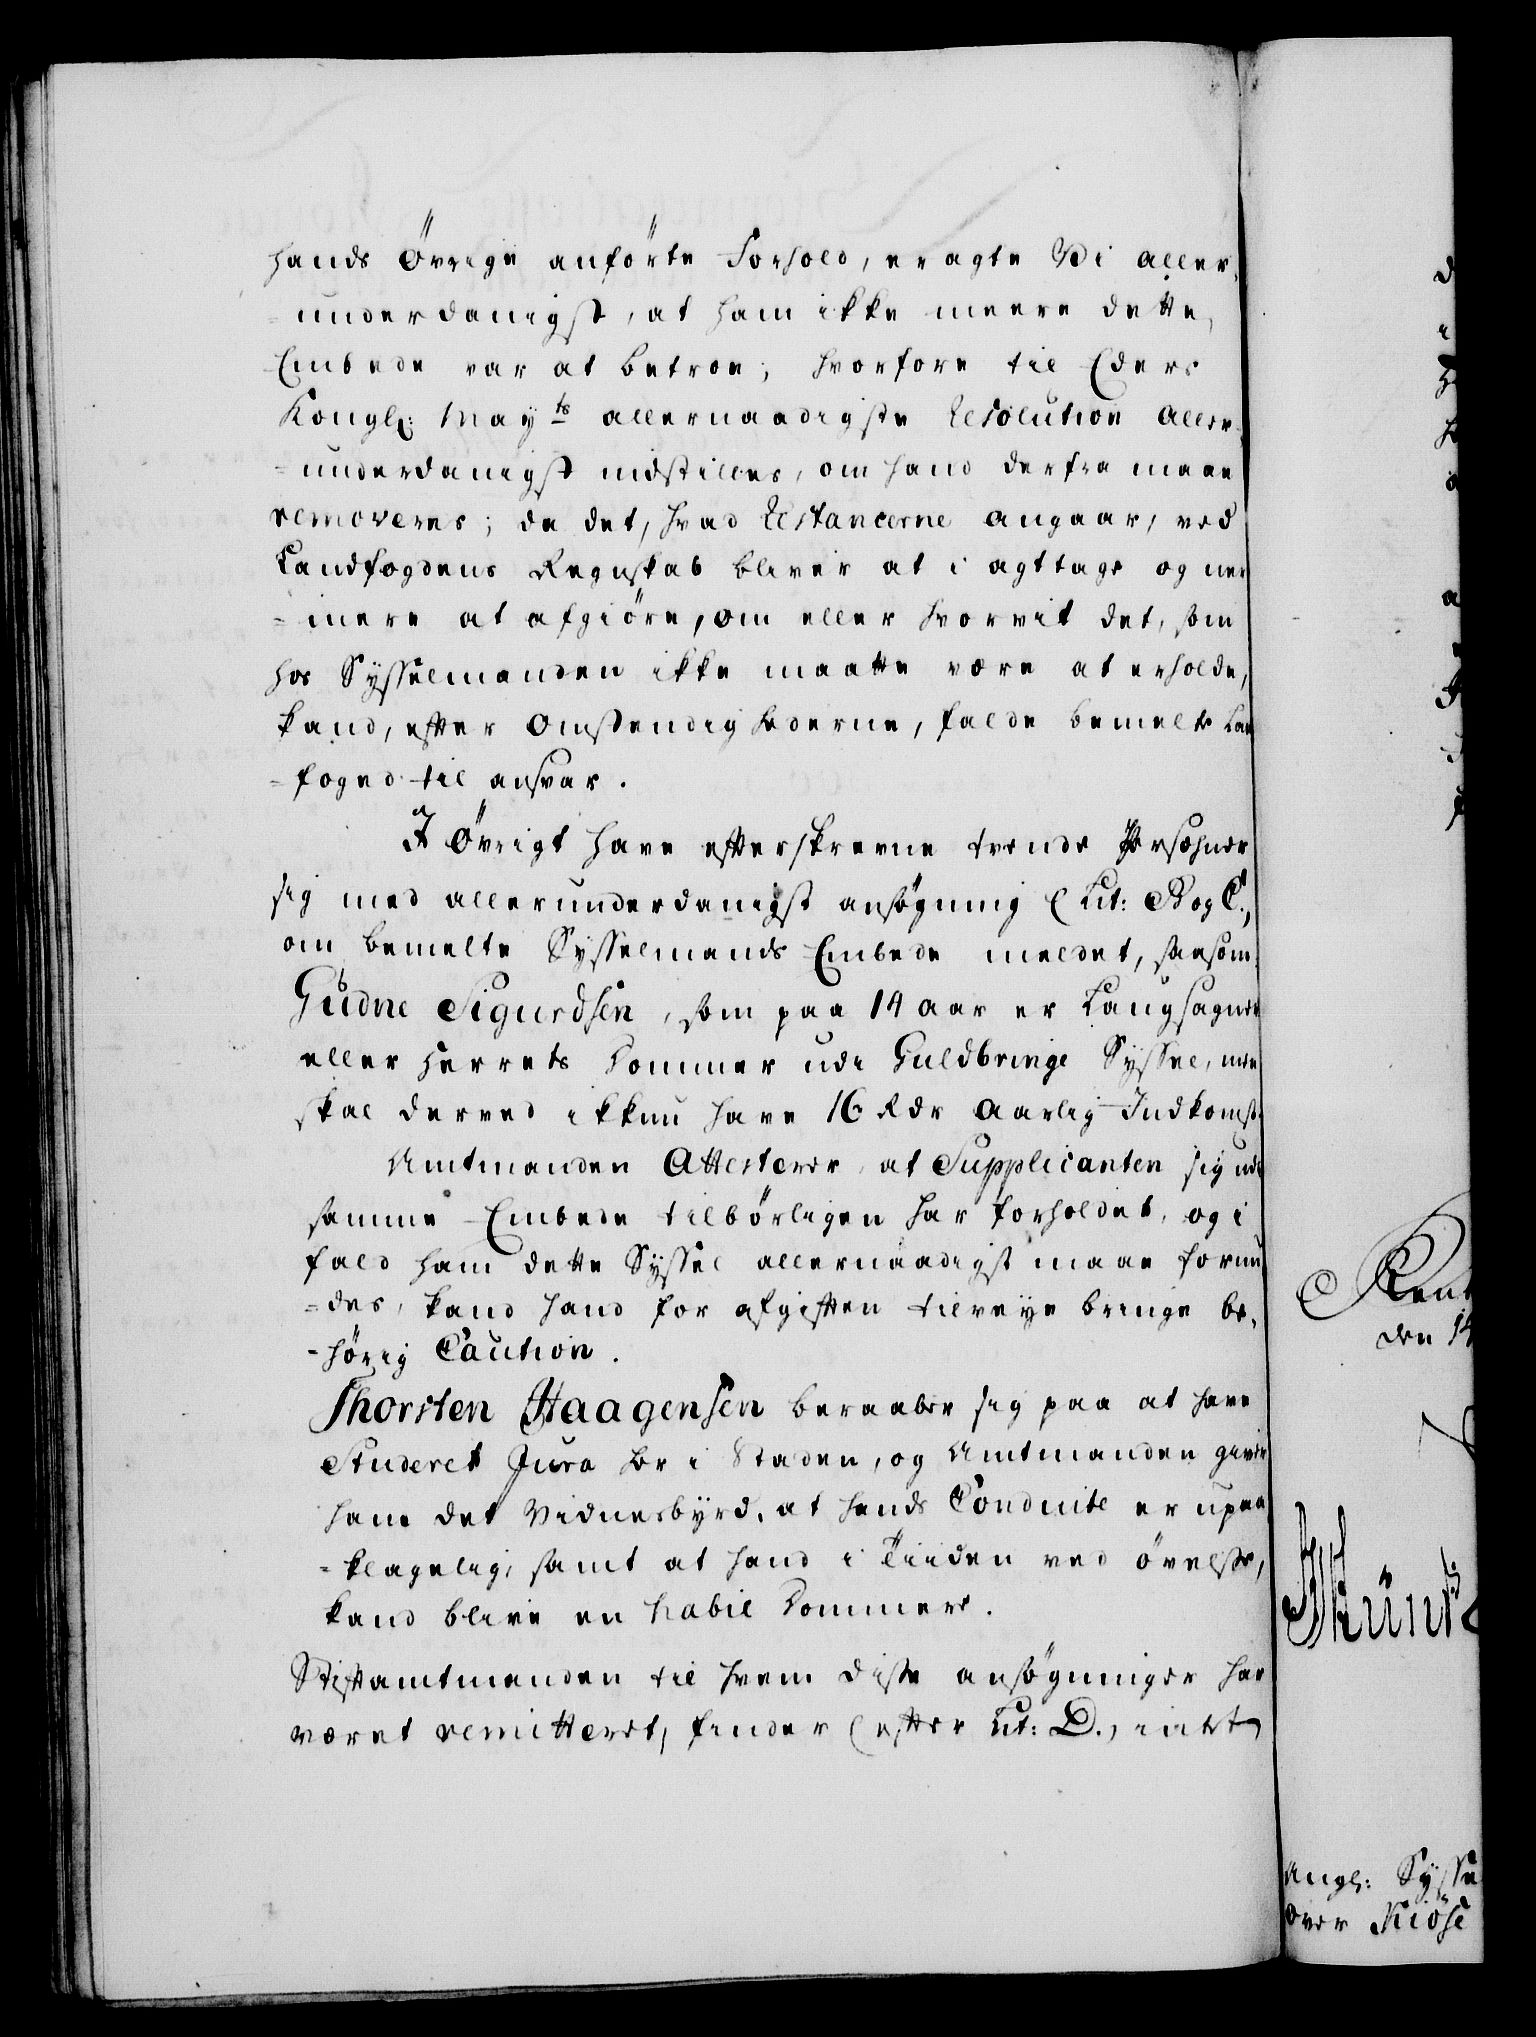 hands Övrige anförte Forhold, eragte Vi aller-
-underdanigst, at ham ikke meere dette
Embede var at betroe; hvorfore til Eders
Kongl: Mayts allernaadigste Resolution aller-
-underdanigst indstilles, om hand derfra maae
removeres; da det, hvad Restancerne angaar, ved
Landfogdens Regnskab bliver at i agttage og ner-
-mere at afgiöre, om eller hvorvit det, som
hos Sysselmanden ikke maatte være at erholde,
kand, efter Omstendighederne, falde bemelte Lan
-foged til ansvar.
I Övrigt have efterskrevne tvende Persohner
sig med allerunderdanigst ansøgning (Lit: B og C.)
om bemelte Sysselmands Embede meldet, saasom
Gudne Sigurdsen, som paa 14 aar er Laugsagner
eller Herrets Dommer udi Guldbringe Syssel, men
skal derved ikkun have 16 Rdr Aarlig Indkomst.
Amtmanden Attesterer, at Supplicanten sig udi
samme Embede tilbörligen har forholdet, og i
fald ham dette Syssel allernaadigst maae forun
-des, kand hand for afgiften tilveye bringe be-
-hörig Caution.
Thorsten Haagensen beraaber sig paa at have
Studeret Jura her i Staden, og Amtmanden giver
ham det Vidnesbyrd, at hands Conduite er upaa
-klagelig, samt at hand i Tiiden ved övelse,
kand blive en habil Dommere.
Stiftamtmanden til hvem disse ansögninger har
været remitteret, finder (efter Lit: D.) intet
den 14
Angl: Sysse
over Kiöse